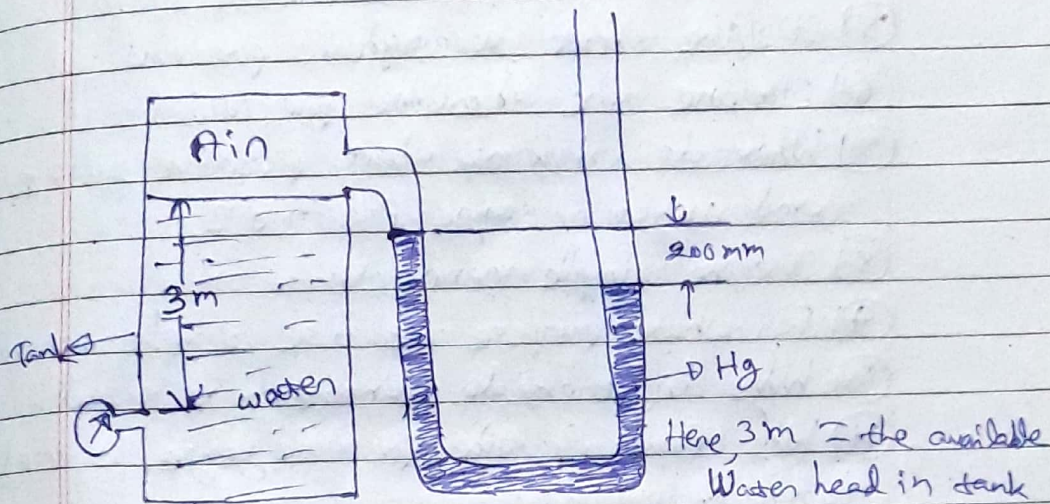 Air
200 mm
3m
Tank
water
Hg
Here, 3m = the available
Water head in tank